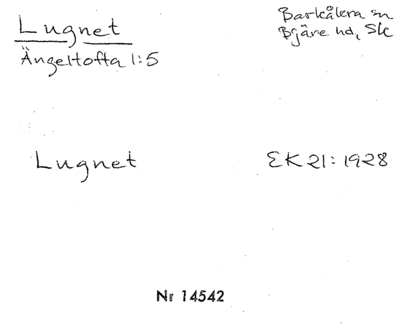 Lugnet
Barkåkra sn
Ängeltofta 1:5
Bjäre hd, Sk
Lugnet
EK 21 : 1928
Nr 14542